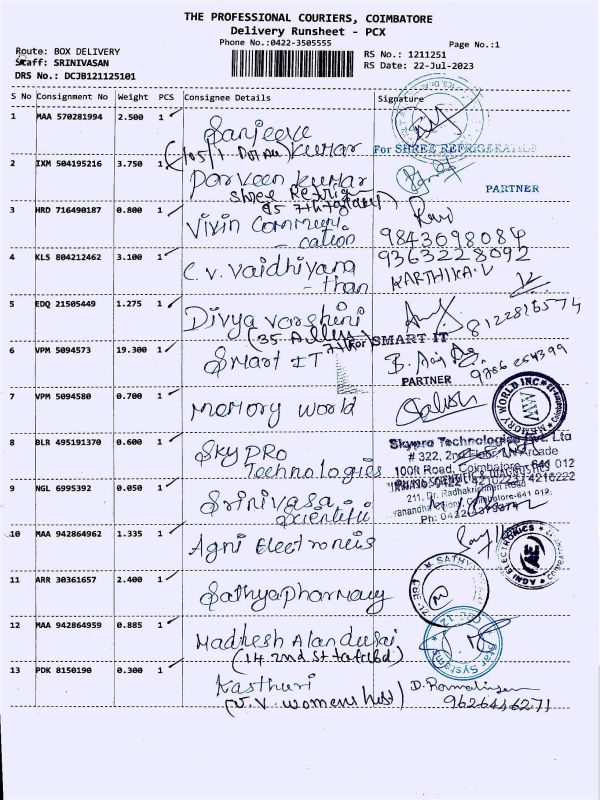 THE PROFESSIONAL COURIERS, COIMBATORE
Delivery Runsheet - PCX
Phone No.:0422-3505555
Page No.:1
Route: BOX DELIVERY
RS No.: 1211251
Staff: SRINIVASAN
RS Date: 22-Jul-2023
DRS No.: DCJB121125101
S No Consignment No Weight PCS Consignee Details Signature
1 MAA 570281994 2.500 1 Sanjeeve
Kumar
For SHREE REFRIGERATION
2 IXM 504195216 3.750 1 Parveen Kumar
PARTNER
Shree Refrig
3 HRD 716490187 0.800 1 Vivin Communi
- cation 9843698084
4 KLS 804212462 3.100 1 C.V. Vaidhiyana
- than
9363228092
KARTHIKA.V
5 EDQ 21505449 1.275 1 Divya varshini
8122816574
For SMART IT
6 VPM 5094573 19.300 1 Smart IT
PARTNER
7 VPM 5094580 0.700 1 Memory World
MEMORY WORLD INC
8 BLR 495191370 0.600 1 SKY PRO
Technologies
Skypro Technologies Pvt. Ltd
# 322, 2nd Floor,
100ft Road, Coimbatore - 641 012
9 NGL 6995392 0.050 1 Srinivasa
Scientific
211, Dr. Radhakrishnan Road
Coimbatore-641 012.
10 MAA 942864962 1.335 1 Agni Electronics
AGNI ELECTRONICS
11 ARR 30361657 2.400 1 Sathyapharmacy
SATHY
12 MAA 942864959 0.885 1 Madhesh Alandurai
(14 2nd st tatabd)
Star Systems
13 PDK 8150190 0.300 1 Kasthuri
(V.V. womens host)
9626446271